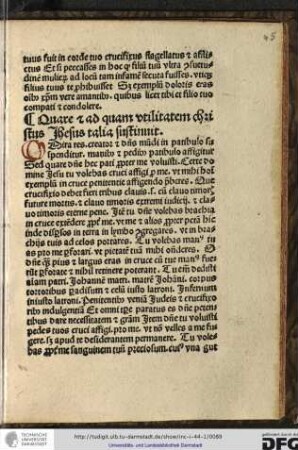 45
tuus fuit in corde tuo crucifixus flagellatus & afflictus
Et si peccasses in hoc
filiū tuū vltra
dinē mulieꝝ ad locū tam infamē secuta fuisses
filius tuus te ꝓhibuisset
exemplū doloris eras
oībꝰ vere amantibꝰ. quibus licet tibi et filio tuo
compati & condolere.
¶ Quare & ad quam vtilitatem chri
stus Jhesus talia sustinuit.
O Mira res. creator & dñs mūdi in patibulo su
spenditur. manibꝰ & pedibꝰ patibulo affigitur
Sed quare dñe hec pati ꝓpter me voluisti. Certe do
mine Jesu tu volebas cruci affigi ꝓ me. vt mihi
exemplū in cruce penitentie affigendo p̄beres. Que
crucifixio debet fieri tribus clauis .s. cū clauo timoris
future mortis. & clauo timoris extremi iudicij. &
clauo timoris eterne pene. Itē tu dñe volebas brachia
in cruce ꝓpꝰ me. vt me & alios ꝓpter peccā
hincinde dispersos in terra in
vt in bra
chijs tuis ad celos portares. Tu volebas manꝰ tu
as pro me ꝑforari. vt pietatē tuā mihi ōnderes. O
dñe pius & largus eras in cruce cū tue manꝰ fue
rūt ꝑforate & nihil retinere poterant. Tu em̄ dedisti
aīam patri. Johannē matri. matrē Johāni. corpus
tortoribus padisum & celū iusto latroni. Infernum
iniusto latroni. Penitentibꝰ veniā Judeis & crucifixo
ribus indulgentiā Et omni
paratus es dñe peniten
tibus dare necessitatem & grām Item dñe tu voluisti
pedes tuos cruci affigi. pro me. vt nō velles a me fu
gere. sꝫ apud te desiderantem permanere. Tu vole
bas ꝓpꝰ me sanguinem tuū preciosum. cuiꝰ vna gut
TECHNISCHE UNIVERSITÄT DARMSTADT
http://tudigit.ulb.tu-darmstadt.de/show/inc-i-44-1/0089
Universitäts- und Landesbibliothek Darmstadt
DFG